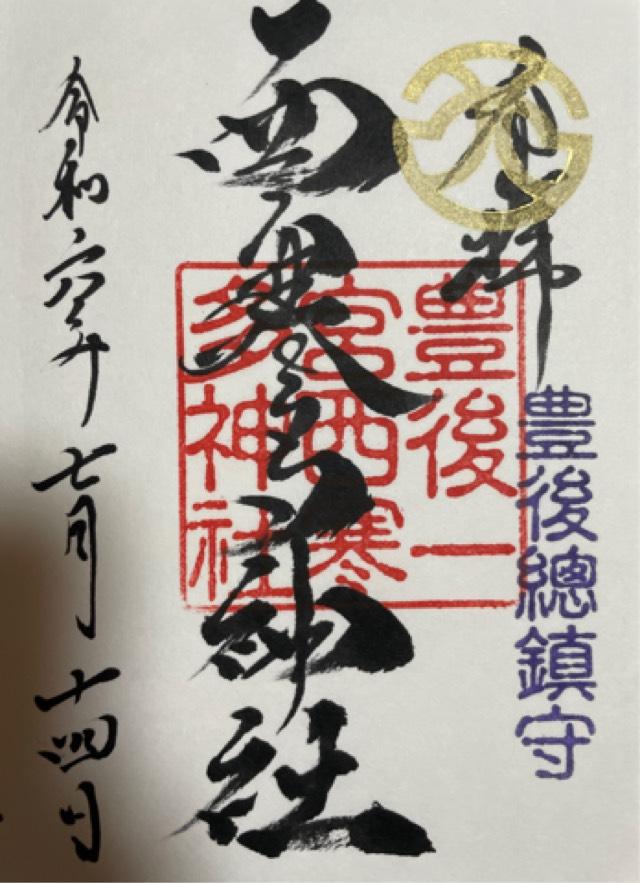 奉拝
豊後總鎮守
西寒多神社
豊後一
宮西寒
多神社
令和六年七月十四日